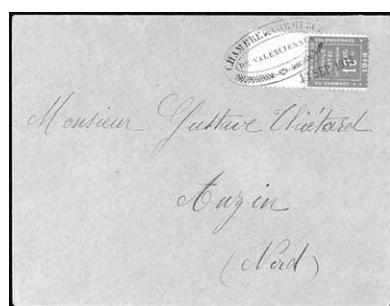 CHAMBRE DE COMMERCE
DE VALENCIENNES
SEP 1914
VALENCIENNES
1914
Monsieur Gustave Thiétard
Anzin
(Nord)